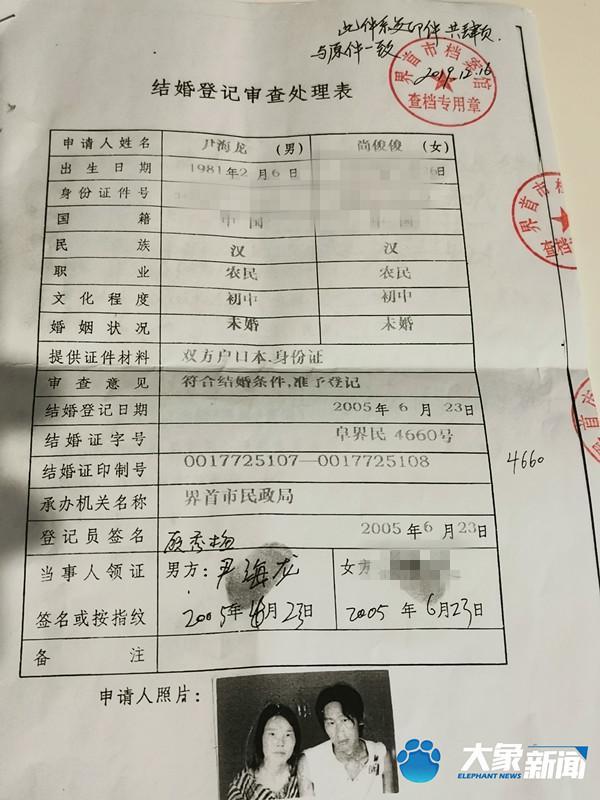 此件系复印件共肆页
与原件一致
2019.12.16
界首市档案馆
查档专用章
结婚登记审查处理表
申请人姓名 尹海龙 (男) 尚俊俊 (女)
出生日期 1981年2月6日 6日
身份证件号
国籍 中国 中国
民族 汉 汉
职业 农民 农民
文化程度 初中 初中
婚姻状况 未婚 未婚
提供证件材料 双方户口本.身份证
审查意见 符合结婚条件,准予登记
结婚登记日期 2005年6月23日
结婚证字号 阜界民4660号
4660
结婚证印制号 0017725107—0017725108
承办机关名称 界首市民政局
登记员签名 2005年6月23日
当事人领证 男方:尹海龙 女方
签名或按指纹 2005年6月23日 2005年6月23日
备注
申请人照片:
大象新闻
ELEPHANT NEWS